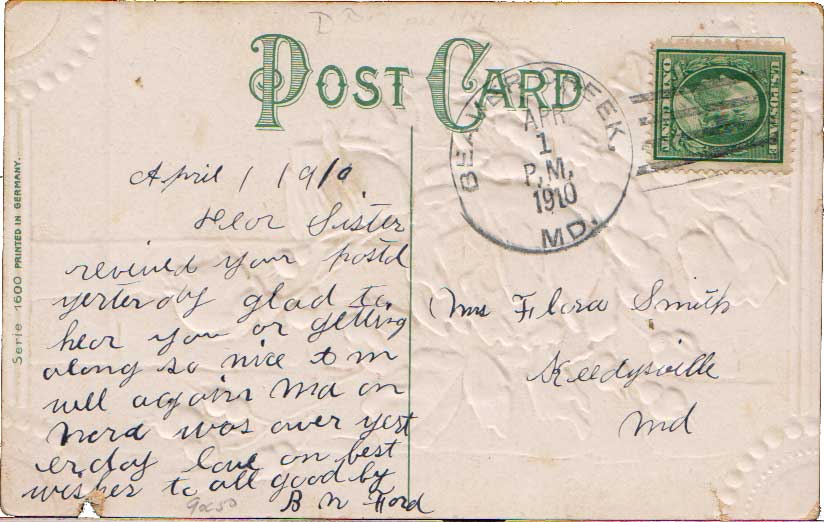 POST CARD
BEAVER CREEK,
APR
1
P.M.
1910
MD.
U.S. POSTAGE
ONE CENT
Serie 1600 PRINTED IN GERMANY.
April 1 1910
Dear Sister
revived your postd
yesterday glad to
hear you or getting
along so nice
well again Ma an
was over yest
erday love an best
wishes to all good by
B N Ford
Mrs Flora Smith
Keedysville
Md